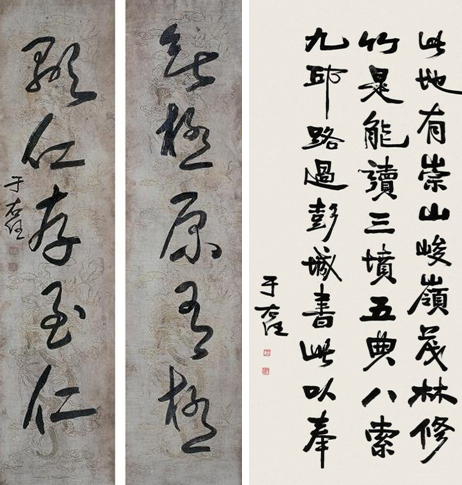 此地有崇山峻嶺茂林修
竹是能讀三墳五典八索
九邱路過彭城書此以奉
于右任
無極原有極
顯仁存至仁
于右任